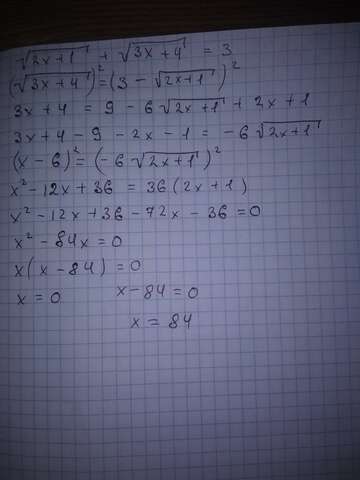 √(2x+1) + √(3x+4) = 3
(√(3x+4))² = (3 - √(2x+1))²
3x+4 = 9 - 6√(2x+1) + 2x + 1
3x+4 - 9 - 2x - 1 = -6√(2x+1)
(x-6)² = (-6√(2x+1))²
x² - 12x + 36 = 36(2x+1)
x² - 12x + 36 - 72x - 36 = 0
x² - 84x = 0
x(x-84) = 0
x = 0 x - 84 = 0
x = 84